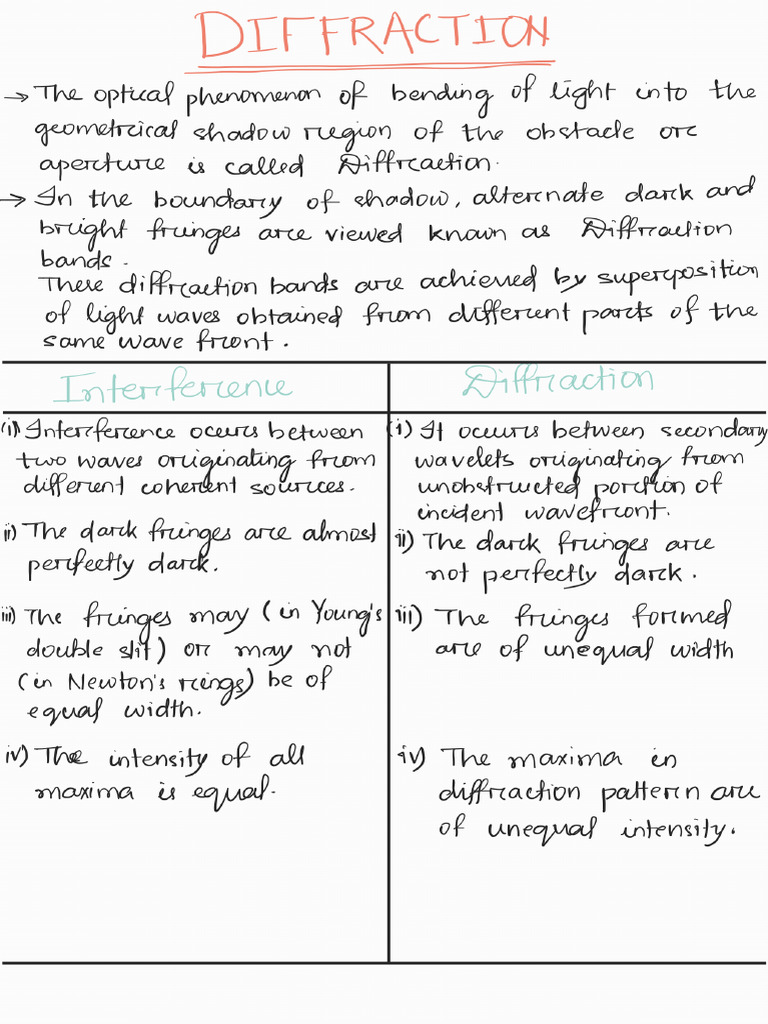 DIFFRACTION
→ The optical phenomenon of bending of light into the
geometrical shadow region of the obstacle or
aperture is called Diffraction.
→ In the boundary of shadow, alternate dark and
bright fringes are viewed known as Diffraction
bands.
These diffraction bands are achieved by superposition
of light waves obtained from different parts of the
same wave front.
Interference
(i) Interference occurs between
two waves originating from
different coherent sources.
ii) The dark fringes are almost
perfectly dark.
iii) The fringes may (in Young's
double slit) or may not
(in Newton's rings) be of
equal width.
iv) The intensity of all
maxima is equal.
Diffraction
(i) It occurs between secondary
wavelets originating from
unobstructed portion of
incident wavefront.
ii) The dark fringes are
not perfectly dark.
iii) The fringes formed
are of unequal width
iv) The maxima in
diffraction pattern are
of unequal intensity.